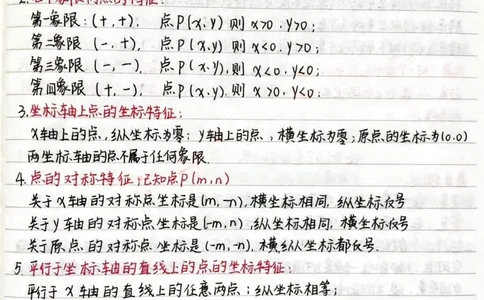 第一象限:(+,+),点P(x,y)则x>0,y>0;
第二象限(-,+),点P(x,y)则x<0,y>0;
第三象限(-,-),点P(x,y),则x<0,y<0;
第四象限(+,-),点P(x,y),则x>0,y<0;
3.坐标轴上点的坐标特征:
x轴上的点,纵坐标为零;y轴上的点,横坐标为零;原点的坐标为(0.0)
两坐标轴的点不属于任何象限.
4.点的对称特征:已知点P(m,n)
关于x轴的对称点坐标是(m,-n),横坐标相同,纵坐标反号
关于y轴的对称点坐标是(-m,n),纵坐标相同,横坐标反号
关于原点的对称点坐标是(-m,-n),横纵坐标都反号.
5.平行于坐标轴的直线上的点的坐标特征:
平行于x轴的直线上的任意两点:纵坐标相等;